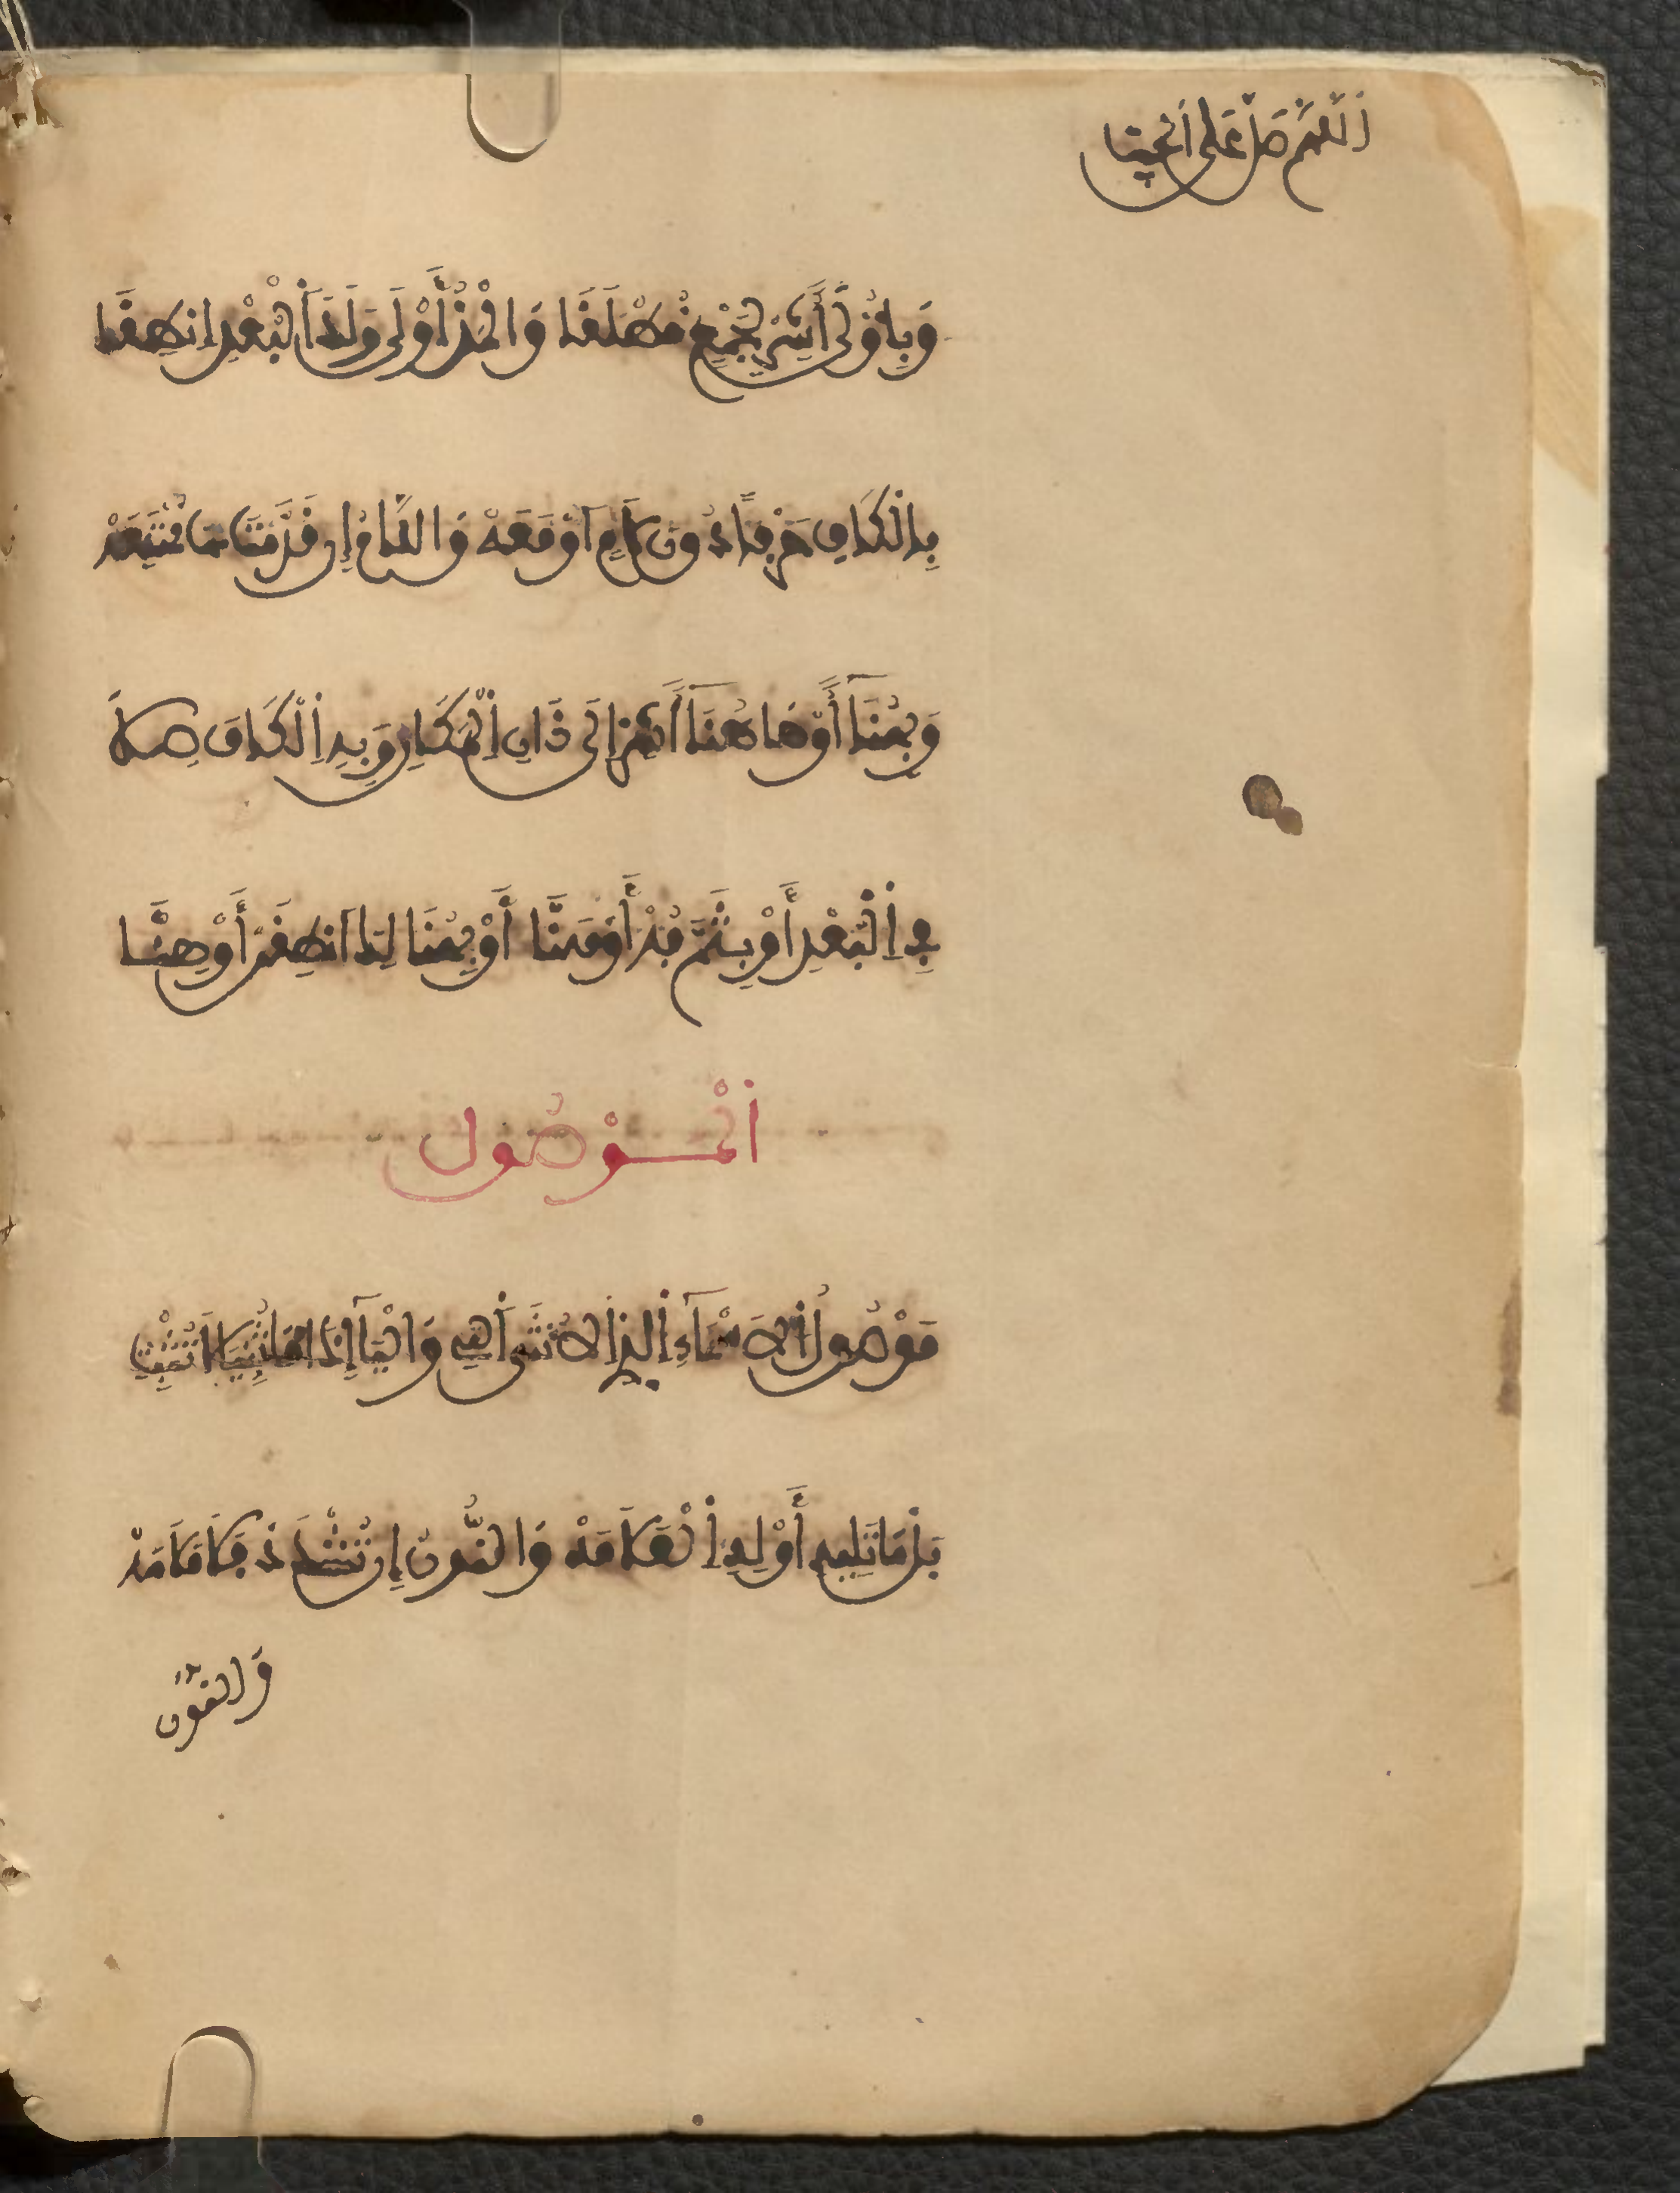 اَللّٰهُمَّ صَلِّ عَلَى
وَبِأُولَى أَشِرْ لِجَمْعٍ مُطْلَقَا وَالْمَدُّ أَوْلَى وَلَدَى الْبُعْدِ انْطِقَا
بِالْكَافِ حَرْفًا دُونَ لَامٍ أَوْ مَعَهْ وَاللَّامُ إِنْ قَدَّمْتَ هَا مُمْتَنِعَهْ
وَبِهُنَا أَوْ هَاهُنَا أَشِرْ إِلَى دَانِي الْمَكَانِ وَبِهِ الْكَافَ صِلَا
فِي الْبُعْدِ أَوْ بِثَمَّ فُهْ أَوْ هَنَّا أَوْ بِهُنَالِكَ انْطِقَنْ أَوْ هِنَّا
اَلْمَوْصُول
مَوْصُولُ الْاَسْمَاءِ الَّذِي الْأُنْثَى الَّتِي وَالْيَا إِذَا مَا ثُنِّيَا لَا تُثْبِتِ
بَلْ مَا تَلِيهِ أَوْلِهِ الْعَلَامَهْ وَالنُّونُ إِنْ تُشْدَدْ فَلَا مَلَامَهْ
وَالنُّون